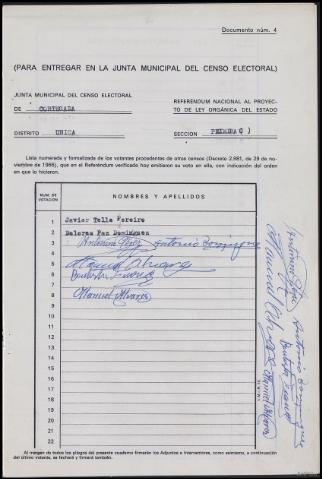 Documento núm. 4
(PARA ENTREGAR EN LA JUNTA MUNICIPAL DEL CENSO ELECTORAL)
JUNTA MUNICIPAL DEL CENSO ELECTORAL
DE CORTEGADA
REFERENDUM NACIONAL AL PROYEC-
TO DE LEY ORGÁNICA DEL ESTADO
DISTRITO UNICA
SECCION PRIMERA ( )
Lista numerada y formalizada de los votantes procedentes de otros censos (Decreto 2.981, de 29 de no-
viembre de 1966), que en el Referéndum verificado hoy emitieron su voto en ella, con indicación del orden
en que lo hicieron.
NUM. DE
VOTACION
NOMBRES Y APELLIDOS
1 Javier Tella Pereiro
2 Dolores Paz Domínguez
3 Antonio
4
5 Manuel Alvarez
6 Bautista
7
8 Manuel Alvarez
9
10
11
12
13
14
15
16
17
18
19
20
21
22
Al margen de todos los pliegos del presente cuaderno firmarán los Adjuntos e Interventores, como asimismo, a continuación
del último votante, se fechará y firmará también.